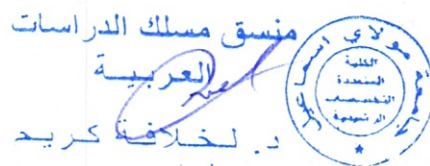 منسق مسلك الدراسات
العربية
د. لخلافة كريد
جامعة مولاي اسماعيل
الكلية
المتعددة
التخصصات
الرشيدية